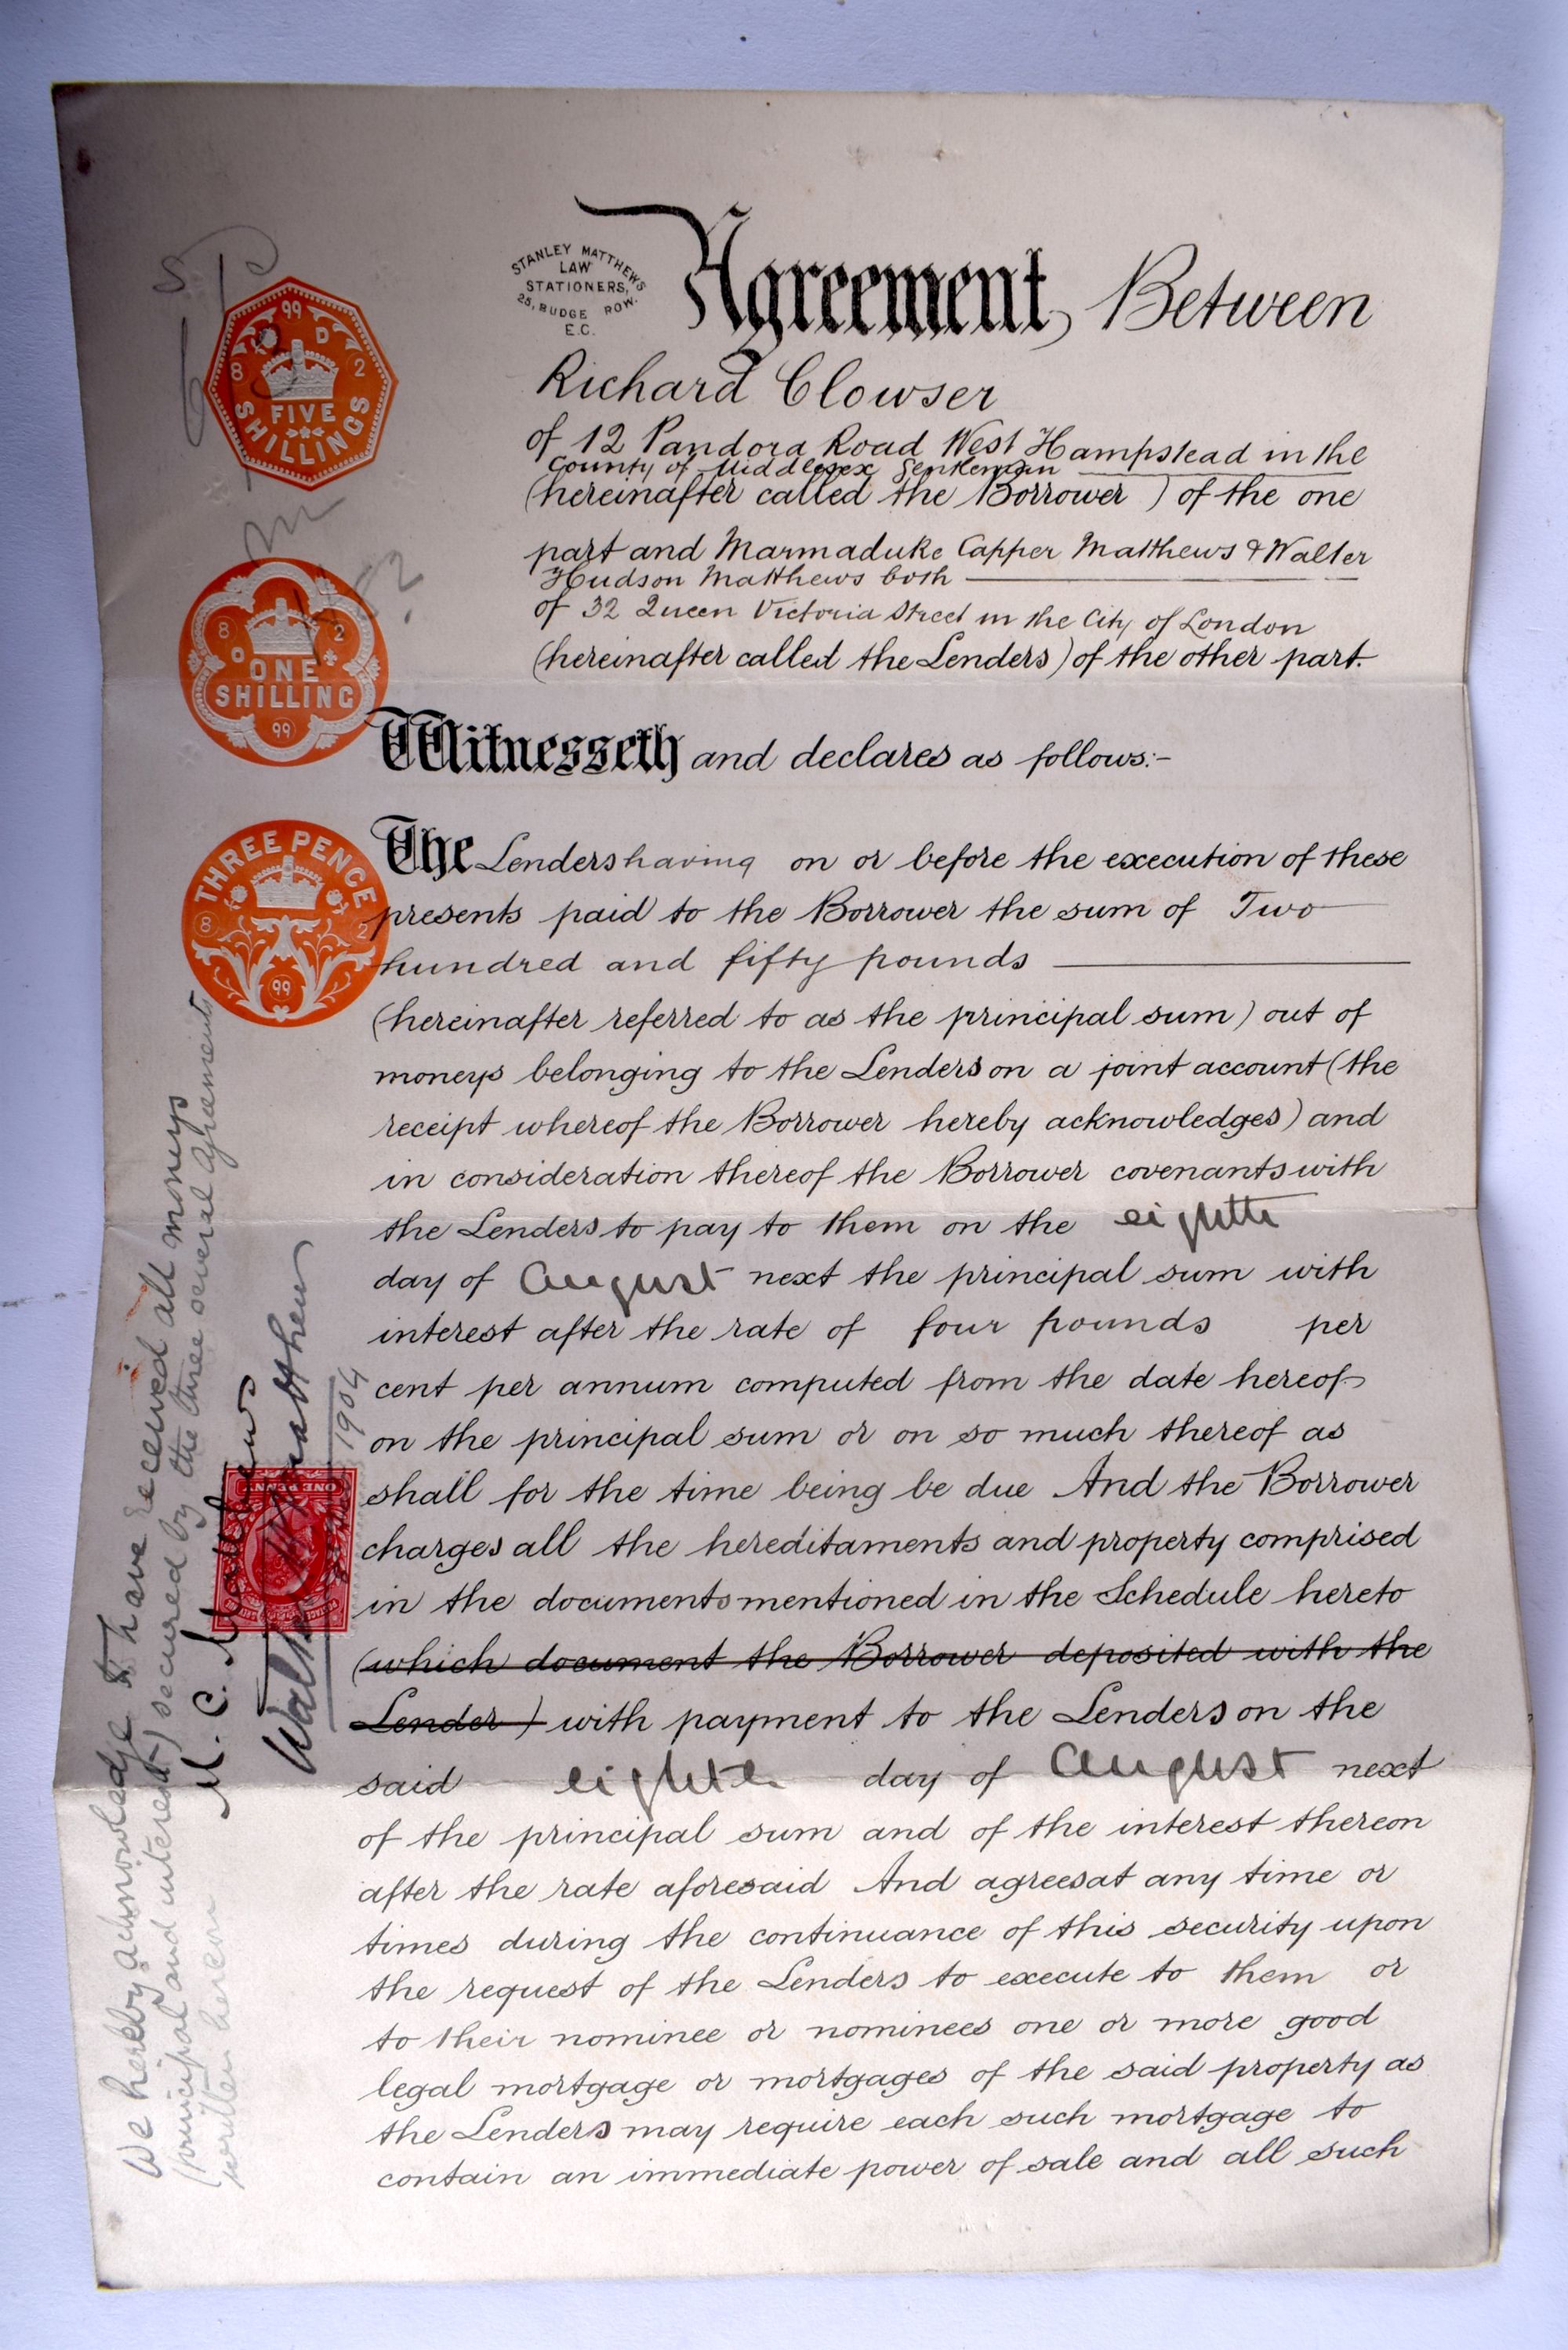 STANLEY MATTHEWS
LAW
STATIONERS,
25, BUDGE ROW.
E.C.
Agreement, Between
Richard Clowser
of 12 Pandora Road West Hampstead in the
County of Middlesex Gentleman
(hereinafter called the Borrower) of the one
part and Marmaduke Capper Matthews & Walter
Hudson Matthews both
of 32 Queen Victoria Street in the City of London
(hereinafter called the Lenders) of the other part.
Witnesseth and declares as follows:-
The Lenders having on or before the execution of these
presents paid to the Borrower the sum of Two
hundred and fifty pounds
(hereinafter referred to as the principal sum) out of
moneys belonging to the Lenders on a joint account (the
receipt whereof the Borrower hereby acknowledges) and
in consideration thereof the Borrower covenants with
the Lenders to pay to them on the eighth
day of August next the principal sum with
interest after the rate of four pounds per
cent per annum computed from the date hereof
on the principal sum or on so much thereof as
shall for the time being be due And the Borrower
charges all the hereditaments and property comprised
in the documents mentioned in the Schedule hereto
(which document the Borrower deposited with the
Lender) with payment to the Lenders on the
said eighth day of August next
of the principal sum and of the interest thereon
after the rate aforesaid And agrees at any time or
times during the continuance of this security upon
the request of the Lenders to execute to them or
to their nominee or nominees one or more good
legal mortgage or mortgages of the said property as
the Lenders may require each such mortgage to
contain an immediate power of sale and all such
99
D
8 2
FIVE
SHILLINGS
8 2
O
ONE
SHILLING
99
THREE PENCE
8 2
99
We hereby acknowledge to have received all moneys
(principal and interest) secured by the three several agreements
written hereon
M. C. Matthews
Walter H Matthews
1904
ONE PENNY